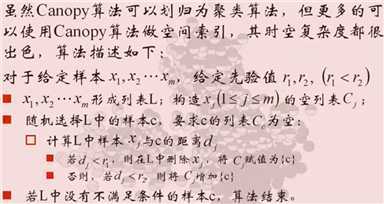 虽然Canopy算法可以划归为聚类算法，但更多的可
以使用Canopy算法做空间索引，其时空复杂度都很
出色，算法描述如下：
对于给定样本 x₁,x₂⋯xₘ，给定先验值 r₁,r₂, (r₁ < r₂)
■ x₁,x₂⋯xₘ形成列表L；构造xⱼ(1≤j≤m)的空列表Cⱼ；
■ 随机选择L中的样本c，要求c的列表C꜀为空：
□ 计算L中样本xⱼ与c的距离dⱼ
■ 若dⱼ<r₁，则在L中删除xⱼ，将Cⱼ赋值为{c}
■ 否则，若dⱼ<r₂，则将Cⱼ增加{c}
■ 若L中没有不满足条件的样本c，算法结束。